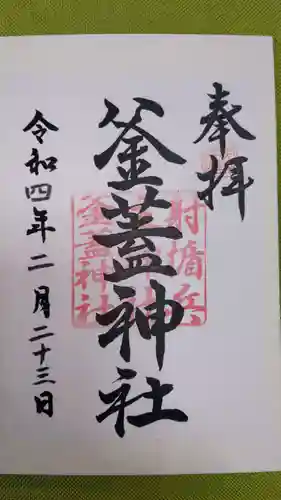 奉拝
釜蓋神社
釜蓋神社
令和四年二月二十三日